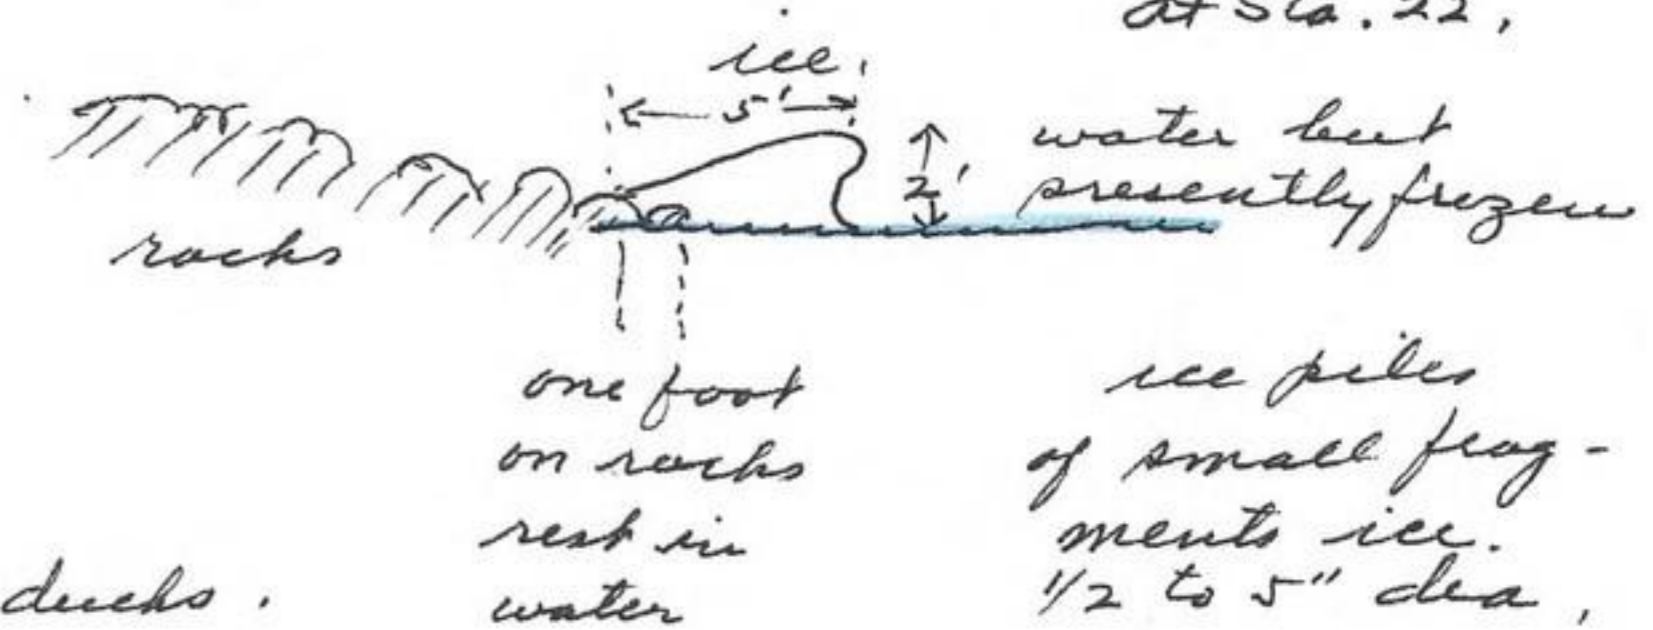 at Sta. 22,
ice.
5'
water but
2'
presently frozen
rocks
one foot
on rocks
rest in
water
ice piles
of small frag-
ments ice.
1/2 to 5" dia,
ducks.